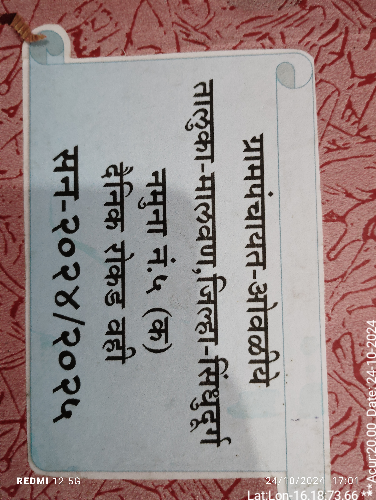 ग्रामपंचायत-ओवळीये
तालुका-मालवण,जिल्हा-सिंधुदूर्ग
नमुना नं.५ (क)
दैनिक रोकड वही
सन-२०२४/२०२५
REDMI 12 5G
24/10/2024 17:01
Lat:Lon-16.18:73.66 *** Acur:20.00 Date: 24-10-2024